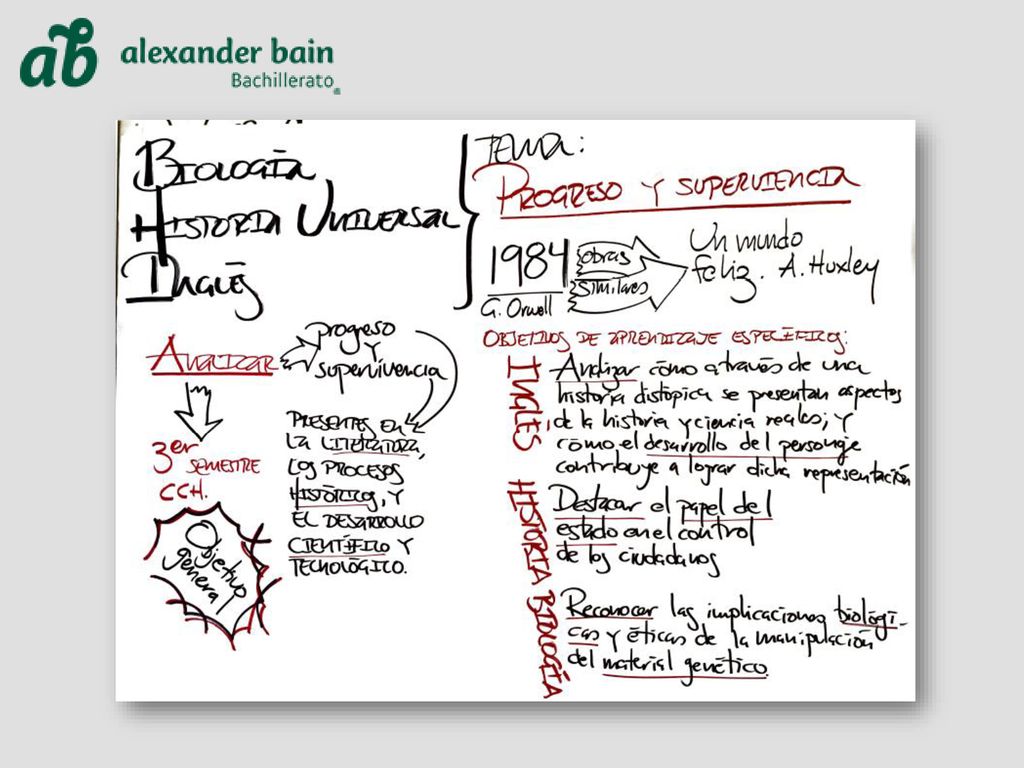 ab
alexander bain
Bachillerato
BIOLOGÍA
HISTORIA UNIVERSAL
INGLÉS
TEMA:
PROGRESO Y SUPERVIENCIA
1984
G. Orwell
obras
similares
Un mundo
feliz. A. Huxley
ANALIZAR
progreso
y
supervivencia
3er
SEMESTRE
CCH.
Objetivo
general
PRESENTES EN
LA LITERATURA,
LOS PROCESOS
HISTÓRICOS, Y
EL DESARROLLO
CIENTÍFICO Y
TECNOLÓGICO.
OBJETIVOS DE APRENDIZAJE ESPECÍFICOS:
INGLÉS
Analizar cómo a través de una
historia distópica se presentan aspectos
de la historia y ciencia reales; y
cómo el desarrollo del personaje
contribuye a lograr dicha representación
HISTORIA
Destacar el papel del
estado en el control
de los ciudadanos
BIOLOGÍA
Reconocer las implicaciones biológi-
cas y éticas de la manipulación
del material genético.